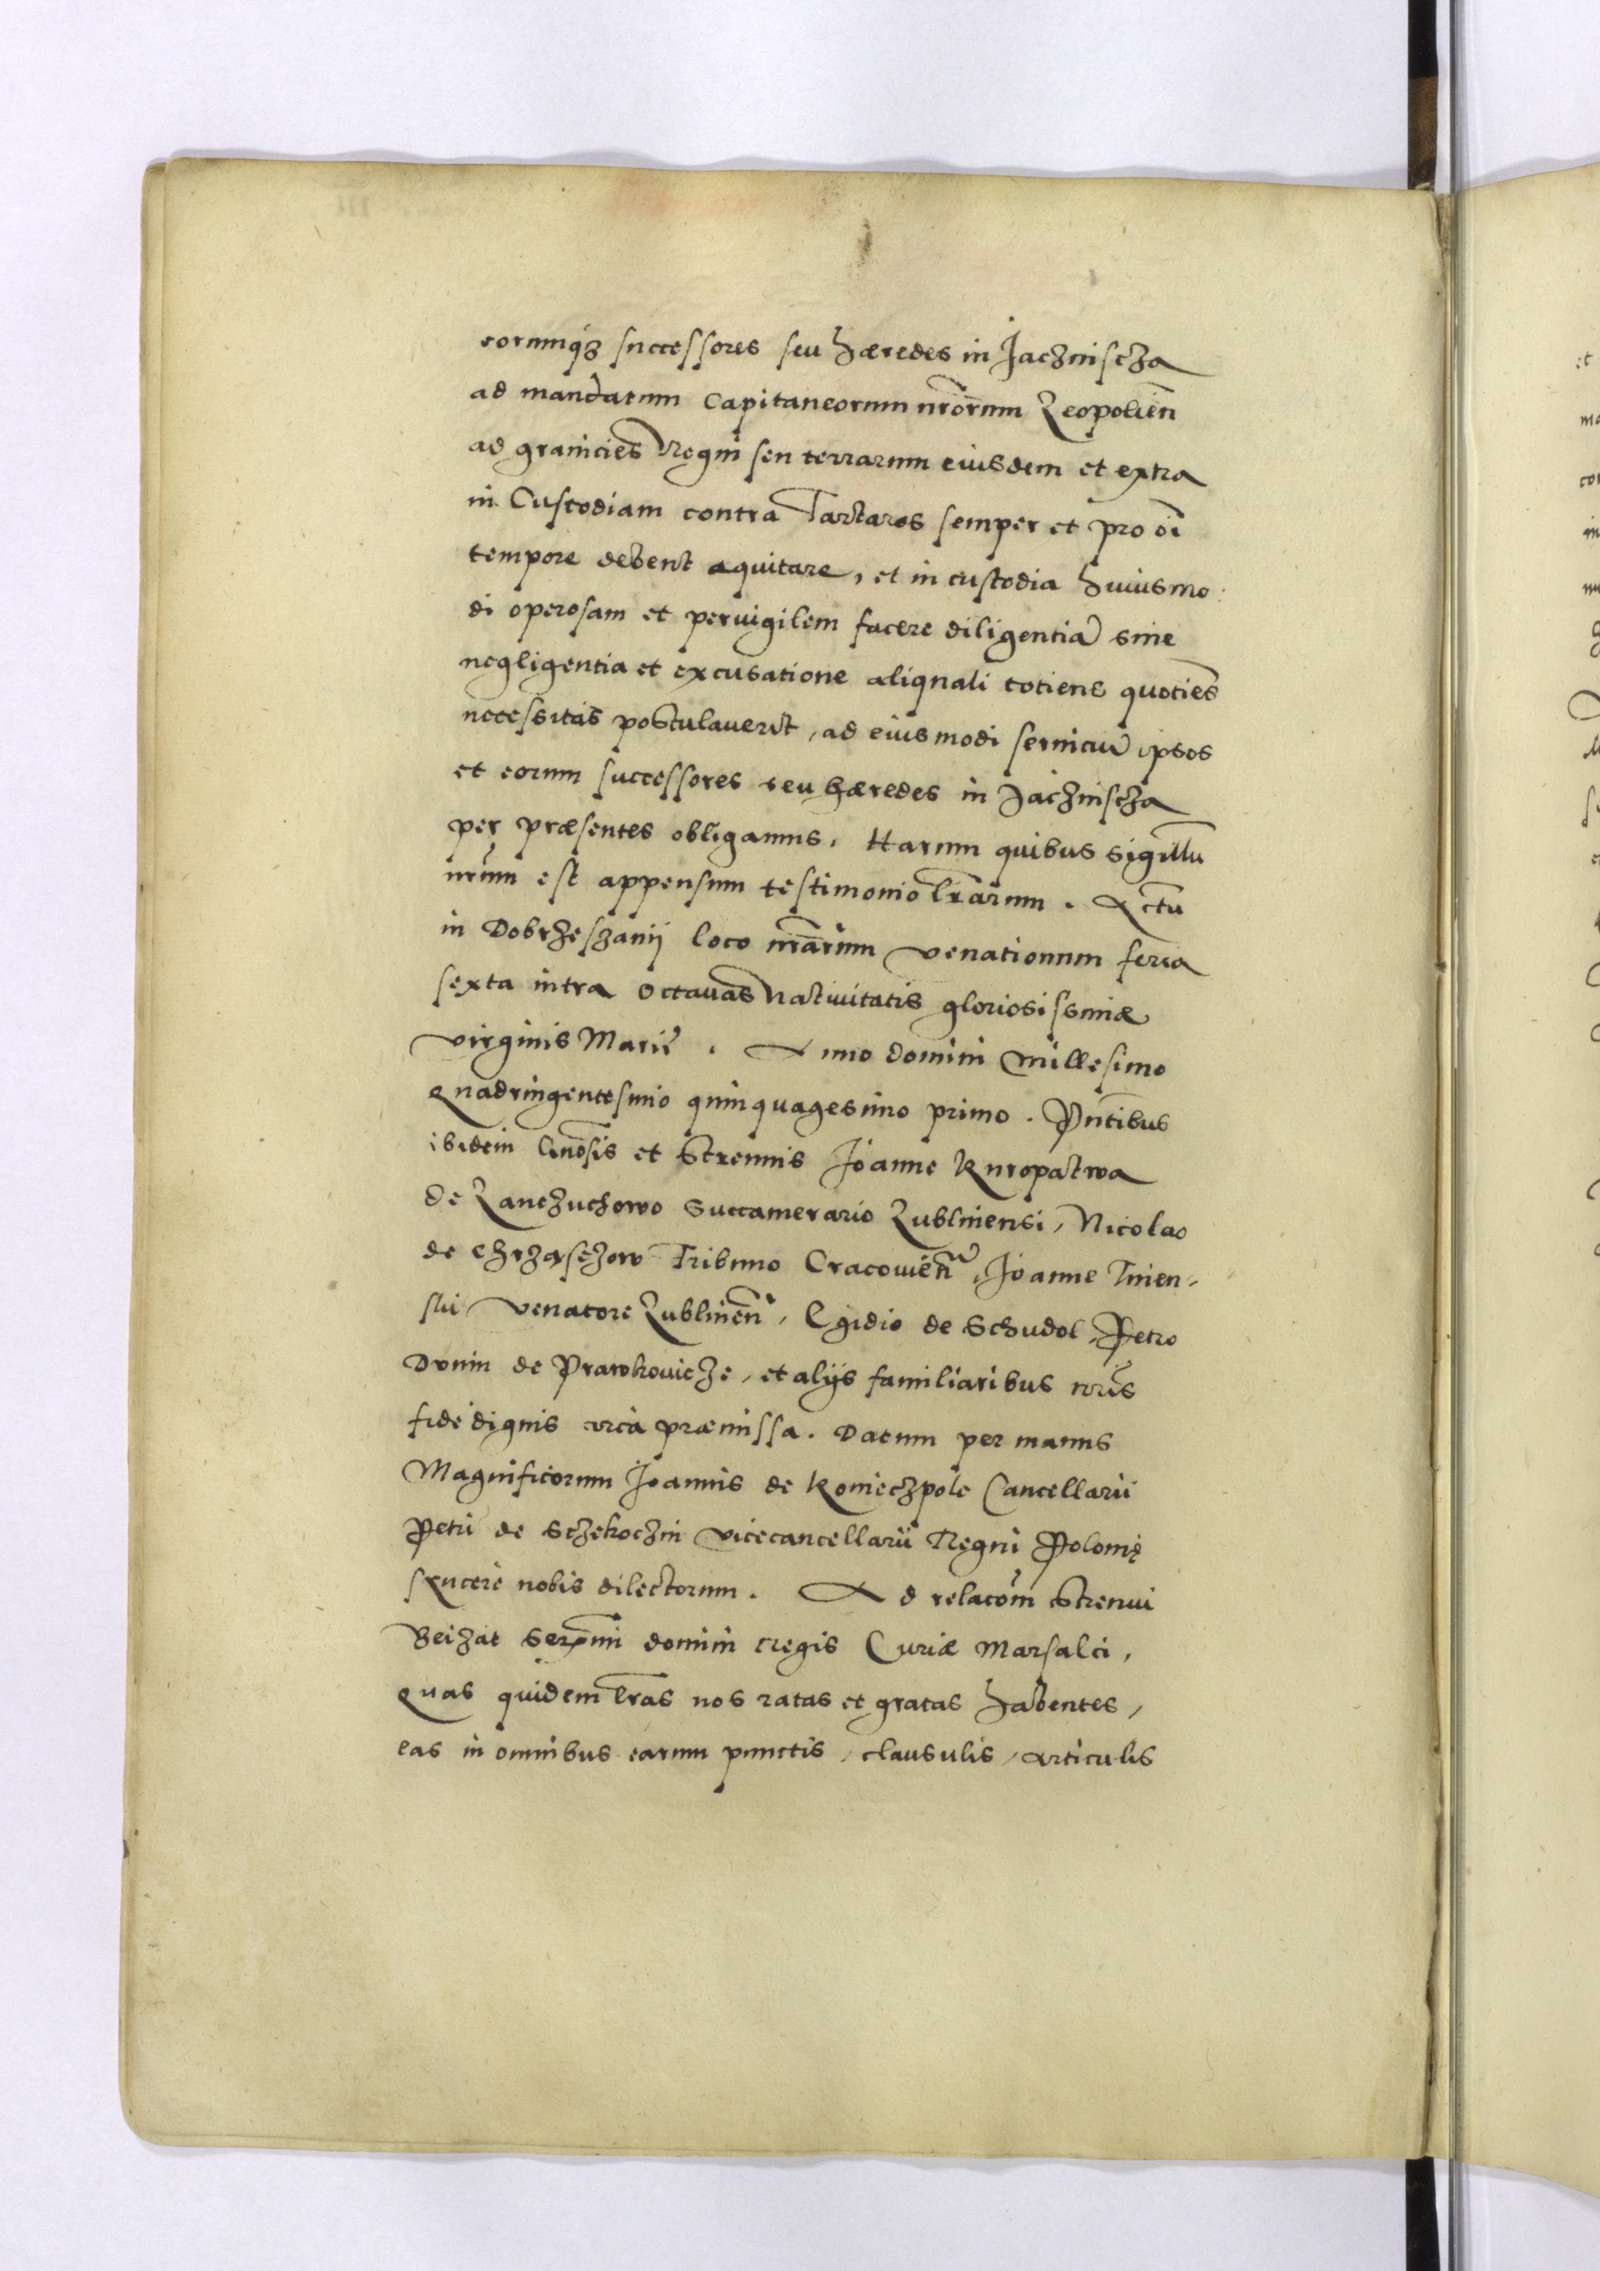 eorumq3 successores seu hæredes in Jachnischa
ad mandatum Capitaneorum nrōrum Leopolien̄
ad granicies Regni seu terrarum eiusdem et extra
in Custodiam contra Tartaros semper et pro oī
tempore debent aquitare, et in custodia huiusmo
di operosam et pervigilem facere diligentiā sine
negligentia et excusatione aliquali totiens quoties
necessitas postulaverit, ad eiusmodi servitiū ipsos
et eorum successores seu hæredes in Jachnischa
per præsentes obligamus. Harum quibus sigillū
nrūm est appensum testimonio lrārum. Actū
in Dobrzeszanij loco nrārum venationum feria
sexta intra octavas Nativitatis gloriosissimæ
virginis Marię. Anno domini Millesimo
Quadringentesimo quinquagesimo primo. Pn̄tibus
ibidem Gn̄osis et Strennis Joanne Kuropatwa
de Lanczuchowo Succamerario Lublinensi, Nicolao
de Chrząsczow Tribuno Cracovien̄, Joanne Tnien-
ski venatore Lublinen̄, Egidio de Schudol, Petro
Donin de Prawkovicze, et alijs familiaribus nrīs
fide dignis circa præmissa. Datum per manus
Magnificorum Joannis de Koniechpole Cancellarii
Petri de Sczekoczin vicecancellarii Regni Polonię
syncere nobis dilectorum. Ad relacōm Strenui
Beizat Serm̄i domini regis Curiæ Marsalci,
Quas quidem lrās nos ratas et gratas habentes,
eas in omnibus earum punctis, clausulis, articulis